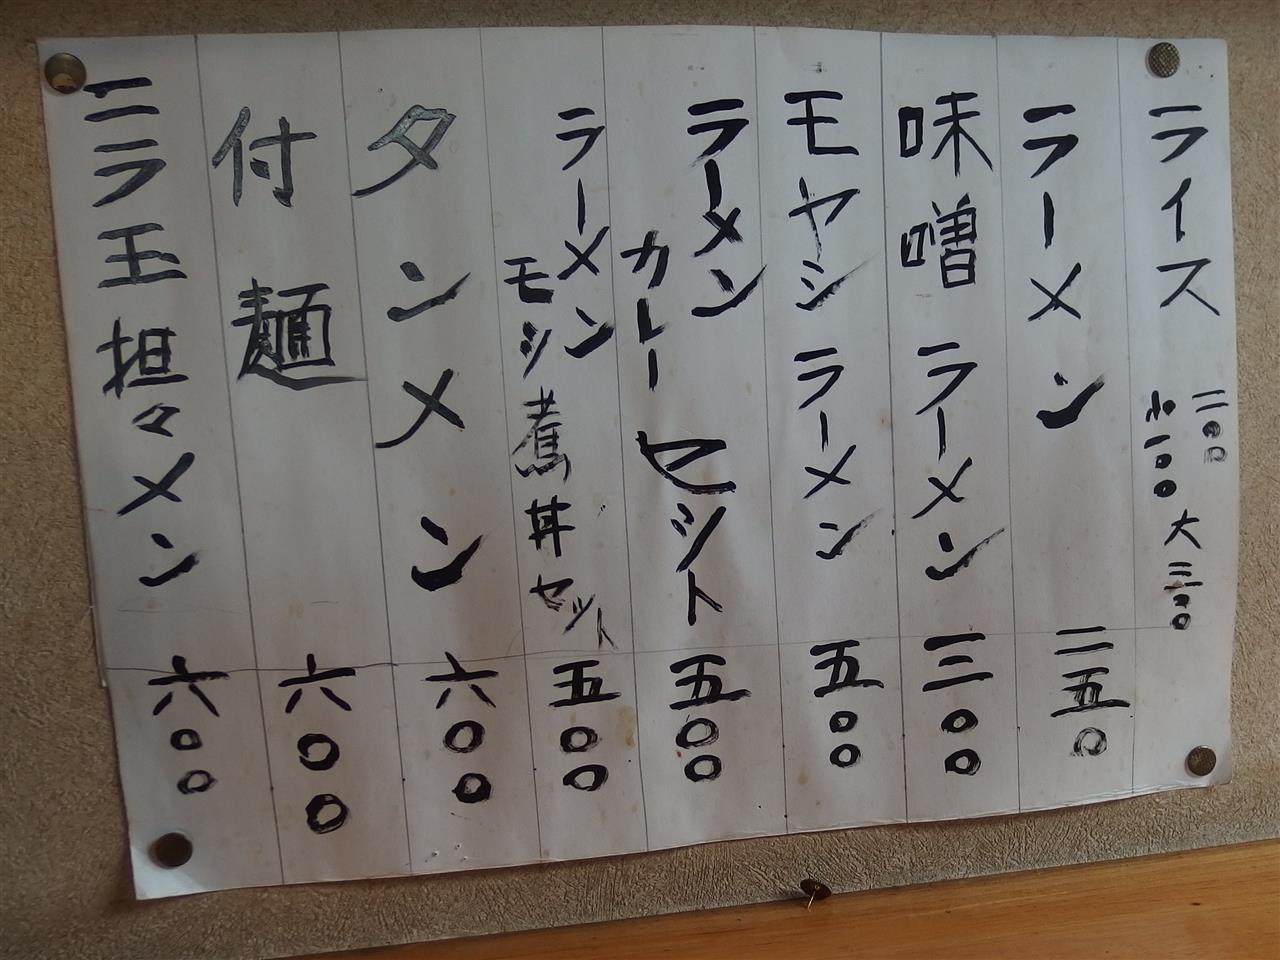 ライス 二〇〇
小一〇〇 大三〇〇
ラーメン 二五〇
味噌ラーメン 三〇〇
モヤシラーメン 五〇〇
ラーメン
カレーセット 五〇〇
ラーメン
モツ煮丼セット 五〇〇
タンメン 六〇〇
付麺 六〇〇
ニラ玉担々メン 六〇〇